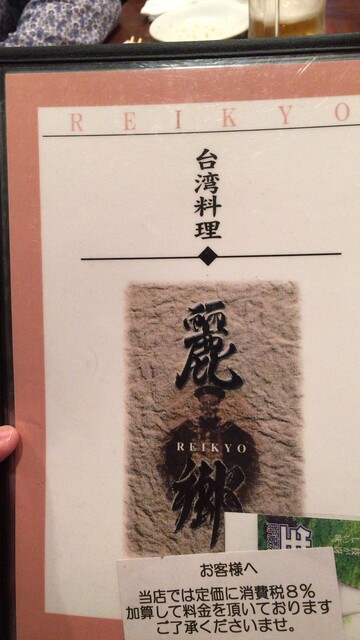 REIKYO
台湾料理
麗
REIKYO
郷
お客様へ
当店では定価に消費税8%
加算して料金を頂いております
ご了承くださいませ。